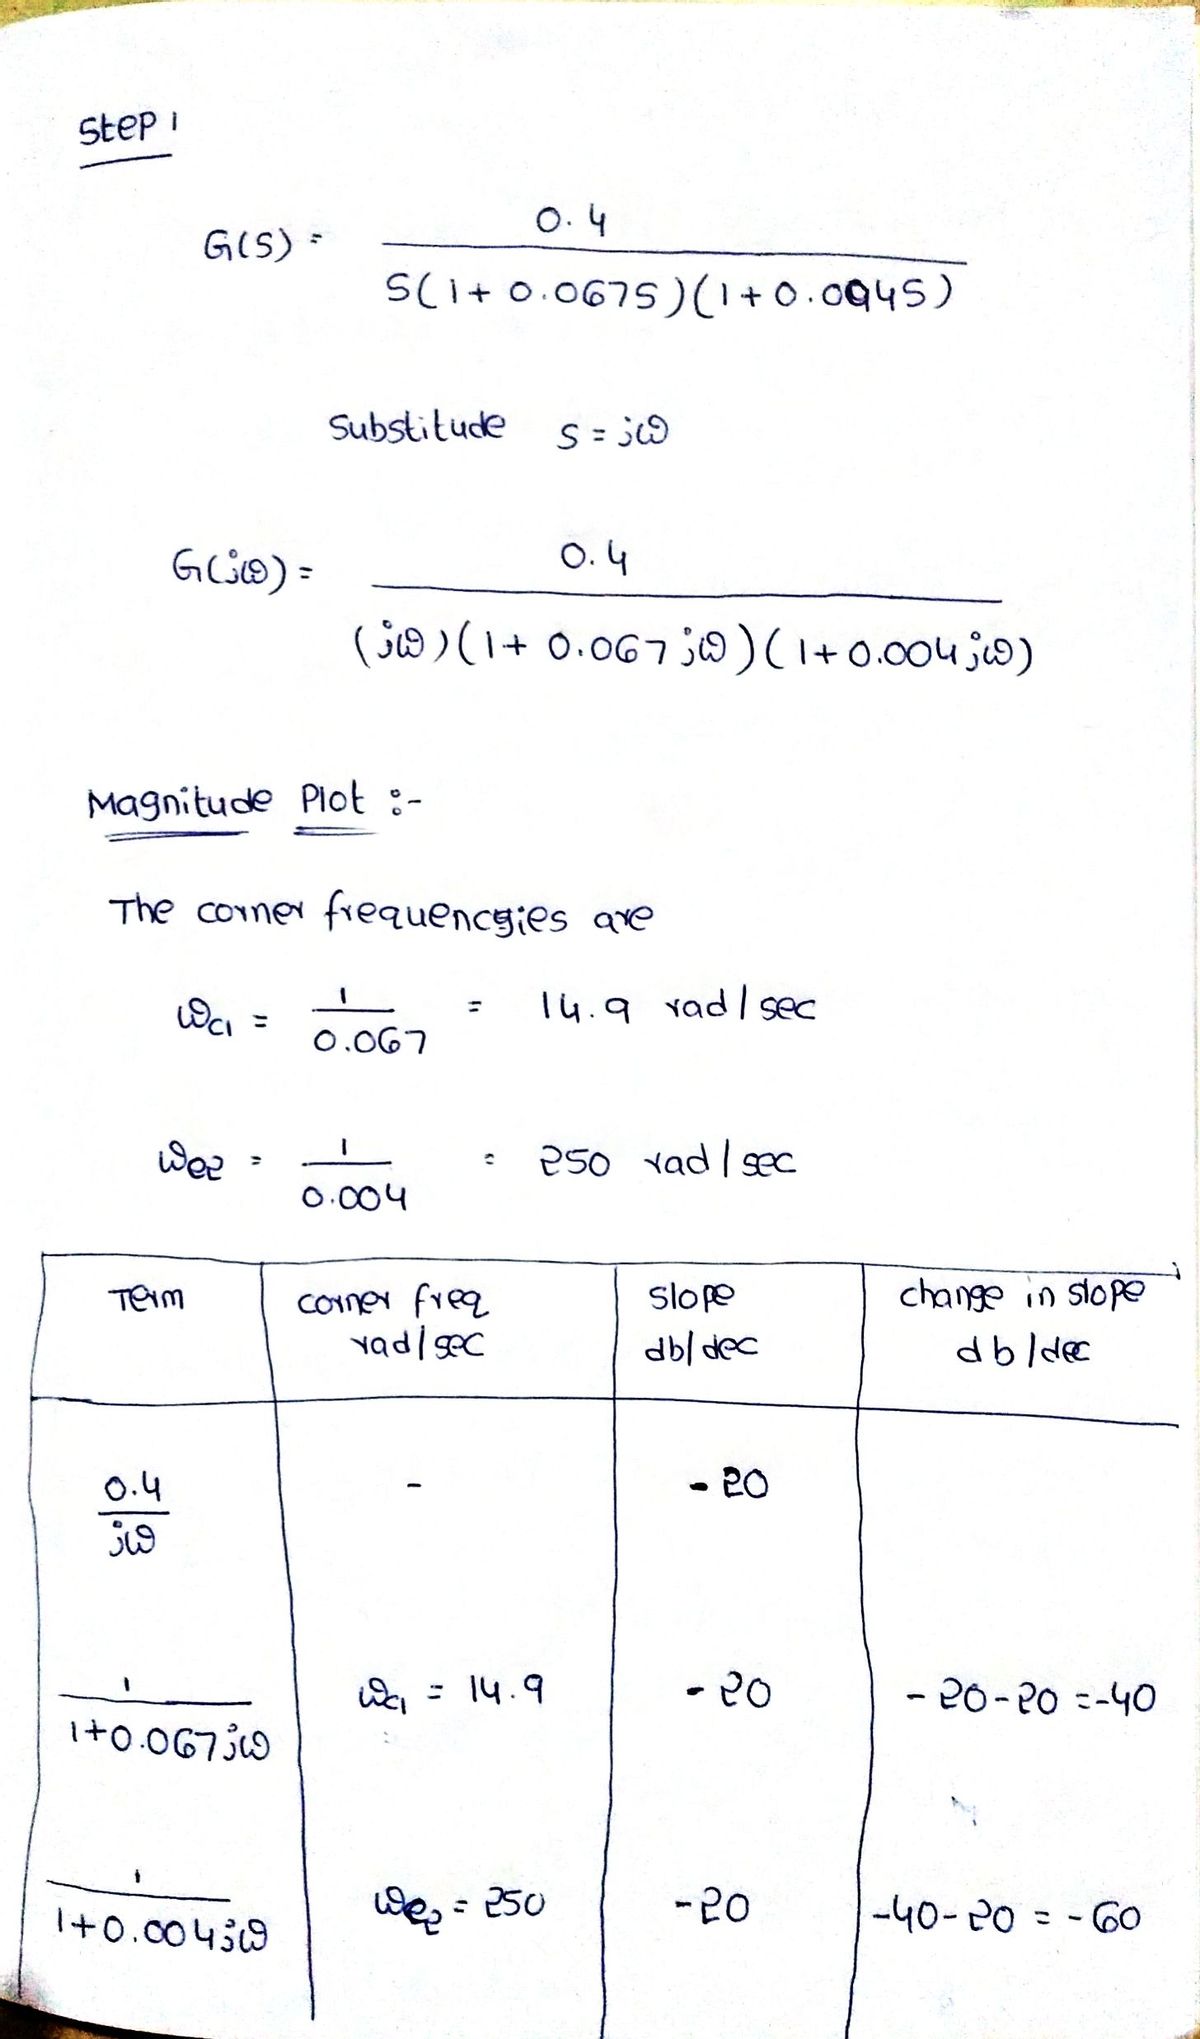 Step 1
G(S) = 0.4 / S(1+0.067S)(1+0.004S)
Substitude S = jω
G(jω) = 0.4 / (jω)(1+0.067jω)(1+0.004jω)
Magnitude Plot :-
The corner frequencgies are
ωc1 = 1/0.067 = 14.9 rad/sec
ωc2 = 1/0.004 = 250 rad/sec
Term | corner freq rad/sec | slope db/dec | change in slope db/dec
0.4/jω | - | -20 |
1/1+0.067jω | ωc1 = 14.9 | -20 | -20-20=-40
1/1+0.004jω | ωc2 = 250 | -20 | -40-20 = -60